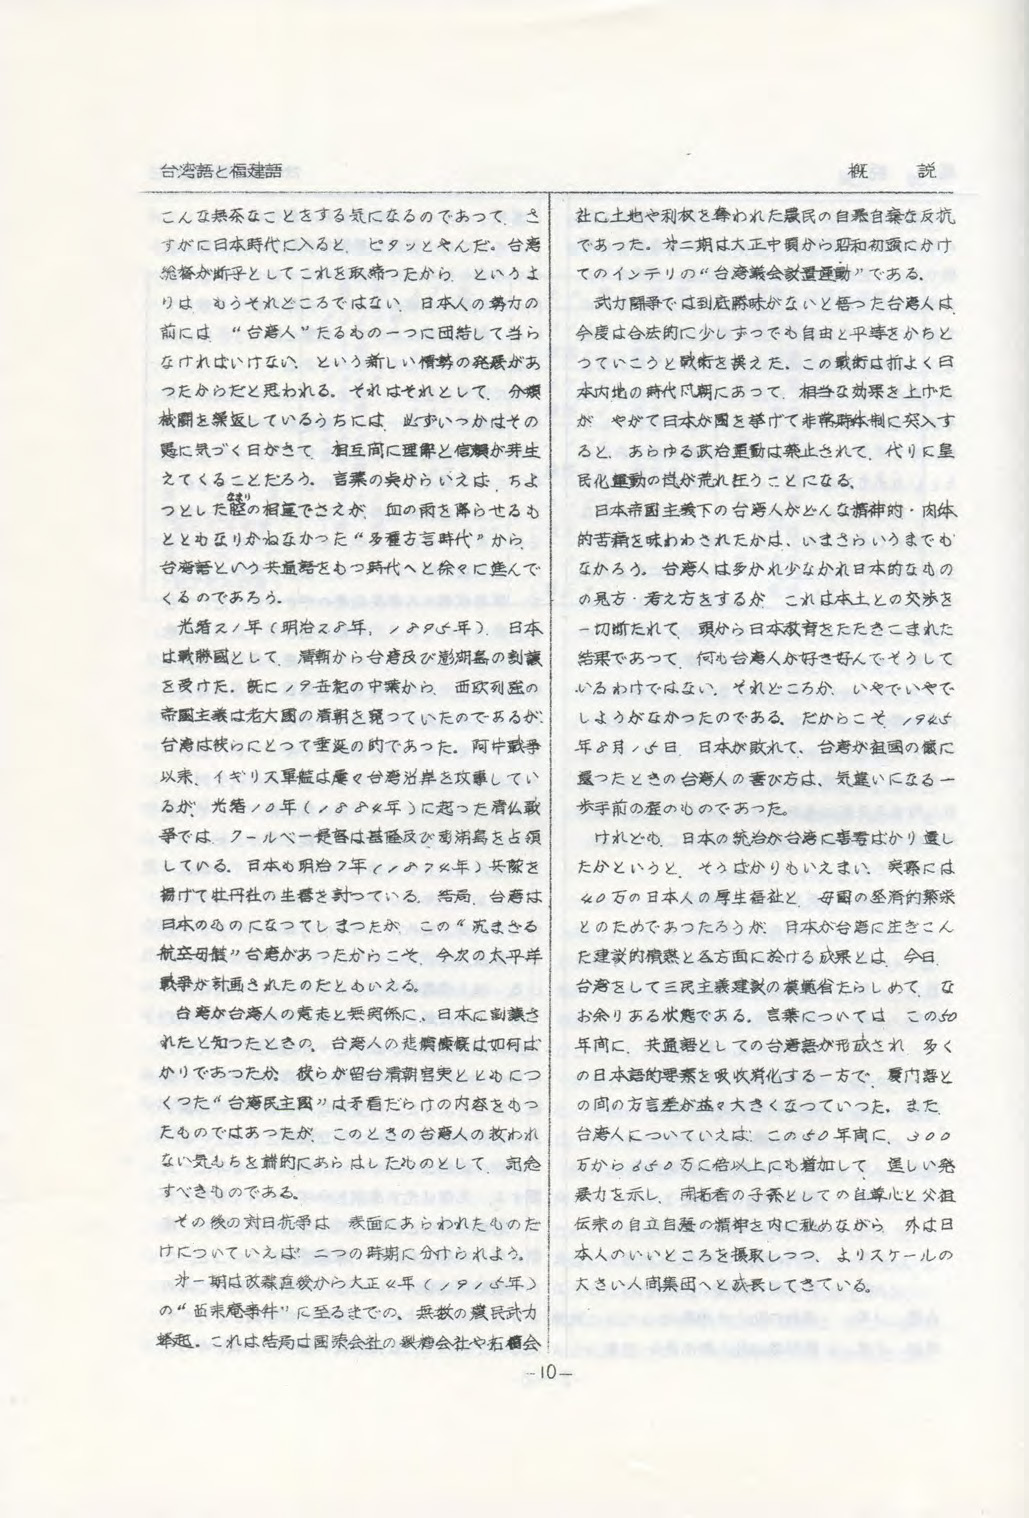 台湾語と福建語
概 説
こんな無茶なことをする気になるのであって、さ
すがに日本時代に入ると、ピタッとやんだ。台湾
総督が断乎としてこれを取締つたから、というよ
りは、もうそれどころではない、日本人の勢力の
前には、“台湾人”たるもの一つに団結して当ら
なければいけない、という新しい情勢の発展があ
つたからだと思われる。それはそれとして、分類
械闘を繰返しているうちには、必ずいつかはその
愚に気づく日がきて、相互間に理解と信頼が芽生
えてくることだろう。言葉の点からいえば、ちよ
つとした腔の相違でさえが、血の雨を降らせるも
なまり
とともなりかねなかった“多種方言時代”から、
台湾語という共通語をもつ時代へと徐々に進んで
くるのであろう。
光緒21年(明治28年、1895年)、日本
は戦勝國として、清朝から台湾及び澎湖島の割譲
を受けた。既に19世紀の中葉から、西欧列強の
帝國主義は老大國の清朝を窺つていたのであるが、
台湾は彼らにとつて垂涎の的であった。阿片戦争
以来、イギリス軍艦は屡々台湾沿岸を攻撃してい
るが、光緒10年(1884年)に起った清仏戦
争では、クールベー提督は基隆及び澎湖島を占領
している。日本も明治7年(1874年)兵隊を
揚げて牡丹社の生蕃を討つている。結局、台湾は
日本のものになってしまつたが、この“沈まざる
航空母艦”台湾があったからこそ、今次の太平洋
戦争が計画されたのだともいえる。
台湾が台湾人の意志と無関係に、日本に割譲さ
れたと知ったときの、台湾人の悲憤慷慨は如何ば
かりであつたか。彼らが留台清朝官吏とともにつ
くつた“台湾民主國”は矛盾だらけの内容をもつ
たものではあったが、このときの台湾人の救われ
ない気もちを端的にあらはしたものとして、記念
すべきものである。
その後の対日抗争は、表面にあらわれたものだ
けについていえば、二つの時期に分けられよう。
才一期は改隷直後から大正4年(1915年)
の“西来庵事件”に至るまでの、無数の農民武力
蜂起。これは結局は国策会社の製糖会社や拓殖会
社に土地や利权を奪われた農民の自暴自棄な反抗
であった。才二期は大正中頃から昭和初頭にかけ
てのインテリの“台湾議会設置運動”である。
武力闘争では到底勝味がないと悟った台湾人は、
今度は合法的に少しずつでも自由と平等をかちと
つていこうと戦術を換えた。この戦術は折よく日
本内地の時代風潮にあって、相当な効果を上げた
が、やがて日本が國を挙げて非常時体制に突入す
ると、あらゆる政治運動は禁止されて、代りに皇
民化運動の嵐が荒れ狂うことになる。
日本帝國主義下の台湾人がどんな精神的・肉体
的苦痛を味わわされたかは、いまさらいうまでも
なかろう。台湾人は多かれ少なかれ日本的なもの
の見方・考え方をするが、これは本土との交渉を
一切断たれて、頭から日本教育をたたきこまれた
結果であって、何も台湾人が好き好んでそうして
いるわけではない。それどころか、いやでいやで
しようがなかったのである。だからこそ、1945
年8月15日、日本が敗れて、台湾が祖國の懐に
還つたときの台湾人の喜び方は、気違いになる一
歩手前の程のものであった。
けれども、日本の統治が台湾に害毒ばかり還し
たかというと、そうばかりもいえまい。実際には
40万の日本人の厚生福祉と、母國の経済的繁栄
とのためであつたろうが、日本が台湾に注ぎこん
だ建設的情熱と各方面に於ける成果とは、今日、
台湾をして三民主義建設の模範省たらしめて、な
お余りある状態である。言葉については、この50
年間に、共通語としての台湾語が形成され、多く
の日本語的要素を吸收消化する一方で、厦门語と
の間の方言差が益々大きくなつていつた。また、
台湾人についていえば、この50年間に、300
万から650万に倍以上にも増加して、逞しい発
展力を示し、開拓者の子孫としての自尊心と父祖
伝来の自立自彊の精神を内に秘めながら、外は日
本人のいいところを摂取しつつ、よりスケールの
大きい人間集団へと成長してきている。
-10-